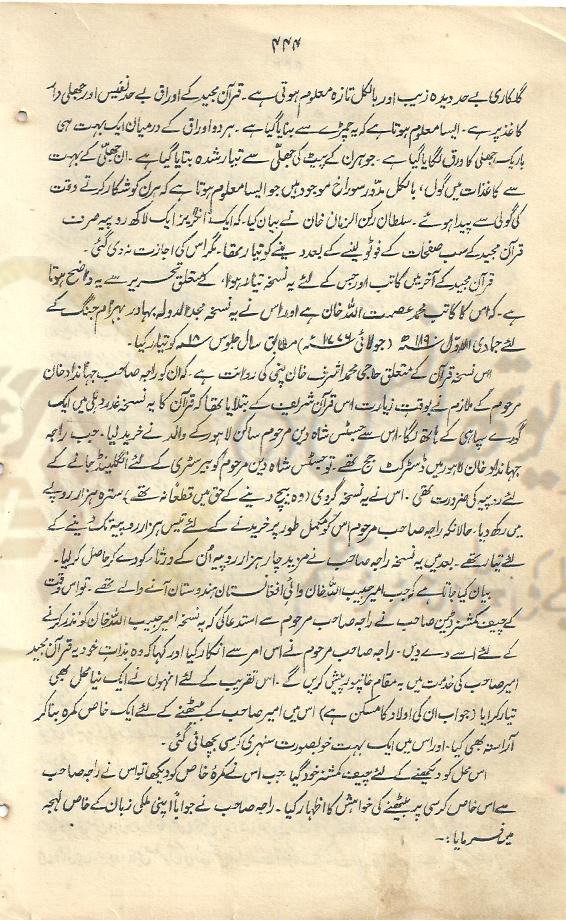 ۴۴۴
گلکاری بے حد دیدہ زیب اور بالکل تازہ معلوم ہوتی ہے۔ قرآن مجید کے اوراق بے حد نفیس اور جھلی دار
کاغذ پر ہے۔ ایسا معلوم ہوتا ہے کہ یہ چمڑے سے بنایا گیا ہے۔ ہر دو اوراق کے درمیان ایک بہت ہی
باریک جھلی کا ورق لگایا گیا ہے۔ جو ہرن کے پیٹ کی جھلّی سے تیار شدہ بتایا گیا ہے۔ ان جھلّی کے بہت
سے کاغذات میں گول، بالکل مدّور سوراخ موجود ہیں جو ایسا معلوم ہوتا ہے کہ ہرن کو شکار کرتے وقت
کی گولی سے پیدا ہوئے۔ سلطان رکن الزمان خان نے بیان کیا۔ کہ ایک انگریز ایک لاکھ روپیہ صرف
قرآن مجید کے سب صفحات کے فوٹو لینے کے بعد دینے کو تیار تھا۔ مگر اس کی اجازت نہ دی گئی۔
قرآن مجید کے آخر میں کاتب اور جس کے لئے یہ نسخہ تیار ہوا، کے متعلق تحریر سے یہ واضح ہوتا
ہے۔ کہ اس کا کاتب محمد عصمت اللہ خان ہے اور اس نے یہ نسخہ مجد الدولہ بہادر بہرام جنگ کے
لئے جمادی الاوّل ۱۱۹۰ھ (جولائی ۱۷۷۶ء) مطابق سال جلوس ۱۸ کو تیار کیا۔
اس نسخہ قرآن کے متعلق حاجی محمد اشرف خان پنی کی روائت ہے۔ کہ ان کو راجہ صاحب جہانداد خان
مرحوم کے ملازم نے بوقت زیارت اس قرآن شریف کے بتلایا تھا کہ قرآن کا یہ نسخہ غدر دہلی میں ایک
گورے سپاہی کے ہاتھ لگا۔ اس سے جسٹس شاہ دین مرحوم ساکن لاہور کے والد نے خرید لیا۔ جب راجہ
جہانداد خان لاہور میں ڈسٹرکٹ جج تھے۔ تو جسٹس شاہ دین مرحوم کو بیرسٹری کے لئے انگلینڈ جانے کے
لئے روپیہ کی ضرورت تھی۔ اس نے یہ نسخہ گروی (وہ بیچ دینے کے حق میں قطعاً نہ تھے) سترہ ہزار روپے
میں رکھ دیا۔ حالانکہ راجہ صاحب مرحوم اس کو مکمل طور پر خریدنے کے لئے تیس ہزار روپیہ تک دینے کے
لئے تیار تھے۔ بعد میں یہ نسخہ راجہ صاحب نے مزید چار ہزار روپیہ اُن کے ورثاء کو دے کر حاصل کر لیا۔
بیان کیا جاتا ہے کہ جب امیر حبیب اللہ خان والئی افغانستان ہندوستان آنے والے تھے۔ تو اس وقت
کے چیف کمشنر ڈین صاحب نے راجہ صاحب مرحوم سے استدعا کی کہ یہ نسخہ امیر حبیب اللہ خان کو نذر کرنے
کے لئے اسے دے دیں۔ راجہ صاحب مرحوم نے اس امر سے انکار کیا اور کہا کہ وہ بذاتِ خود یہ قرآن مجید
امیر صاحب کی خدمت میں بہ مقام خانپور پیش کریں گے۔ اس تقریب کے لئے انہوں نے ایک نیا محل بھی
تیار کرایا (جو اب ان کی اولاد کا مسکن ہے) اس میں امیر صاحب کے بیٹھنے کے لئے ایک خاص کمرہ بنا کر
آراستہ بھی کیا۔ اور اس میں ایک بہت خوبصورت سنہری کرسی بچھائی گئی۔
اس محل کو دیکھنے کے لئے چیف کمشنر خود گیا جب اس نے کمرۂ خاص کو دیکھا تو اس نے راجہ صاحب
سے اس خاص کرسی پر بیٹھنے کی خواہش کا اظہار کیا۔ راجہ صاحب نے جواباً اپنی ملکی زبان کے خاص لہجہ
میں فرمایا:۔